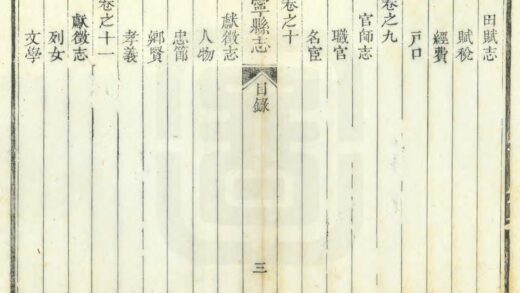 田賦志
賦稅
經費
戸口
卷之九
官師志
職官
名宦
卷之十
寧縣志
目錄
三
獻徵志
人物
忠節
鄉賢
孝義
卷之十一
獻徵志
列女
文學